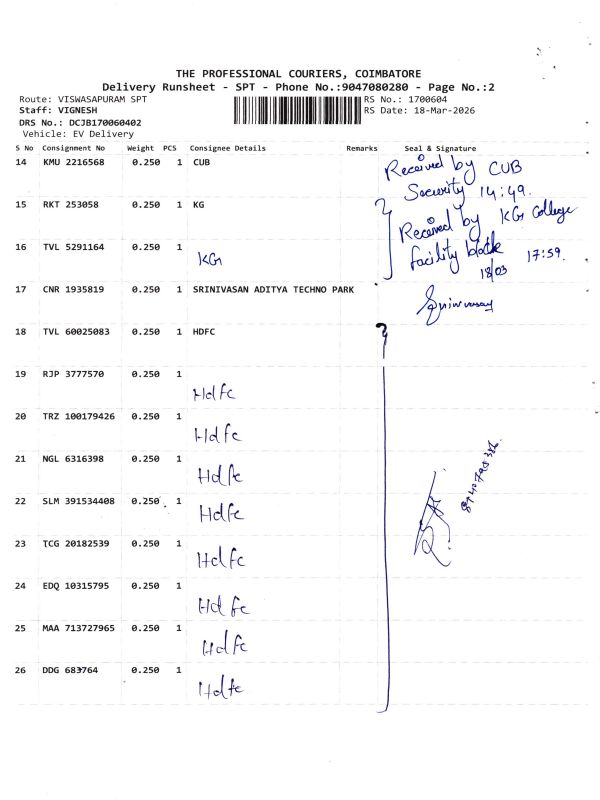 THE PROFESSIONAL COURIERS, COIMBATORE
Delivery Runsheet - SPT - Phone No.:9047080280 - Page No.:2
Route: VISWASAPURAM SPT
Staff: VIGNESH
DRS No.: DCJB170060402
Vehicle: EV Delivery
RS No.: 1700604
RS Date: 18-Mar-2026
S No Consignment No Weight PCS Consignee Details Remarks Seal & Signature
14 KMU 2216568 0.250 1 CUB
Received by CUB
Security 14:49.
15 RKT 253058 0.250 1 KG
Received by KG College
16 TVL 5291164 0.250 1 KG
facility block 17:59.
18/03
17 CNR 1935819 0.250 1 SRINIVASAN ADITYA TECHNO PARK
Srinivasan
18 TVL 60025083 0.250 1 HDFC
19 RJP 3777570 0.250 1 Hdfc
20 TRZ 100179426 0.250 1 Hdfc
21 NGL 6316398 0.250 1 Hdfc
22 SLM 391534408 0.250 1 Hdfc
23 TCG 20182539 0.250 1 Hdfc
24 EDQ 10315795 0.250 1 Hdfc
25 MAA 713727965 0.250 1 Hdfc
26 DDG 683764 0.250 1 Hdfc